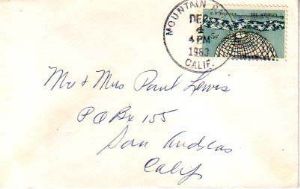 MOUNTAIN
DEC
4
4 PM
1963
CALIF.
Mr & Mrs Paul Lewis
P O Box 155
San Andreas
Calif